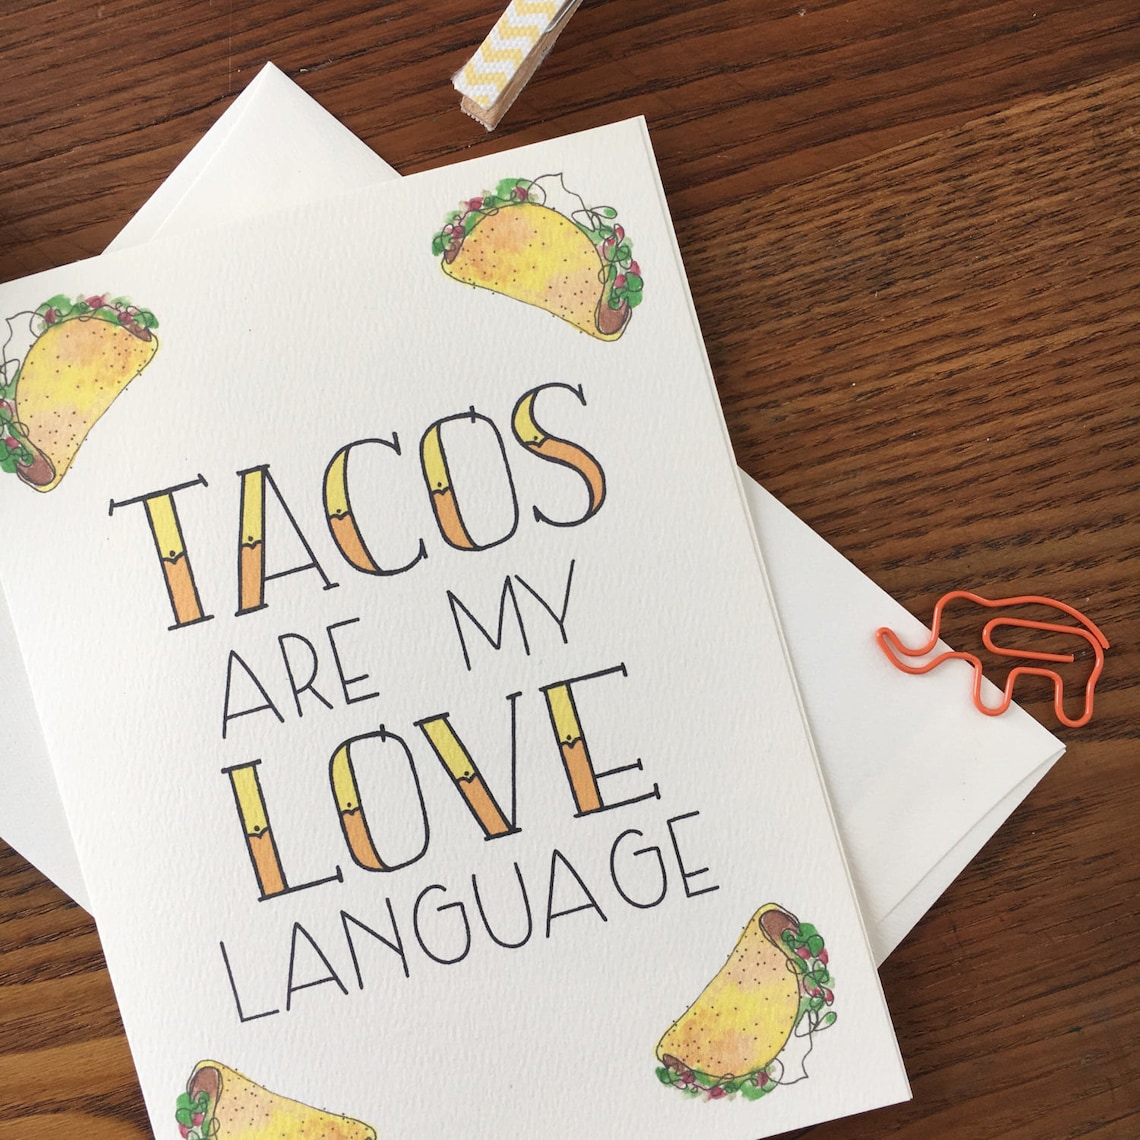 TACOS
ARE MY
LOVE
LANGUAGE